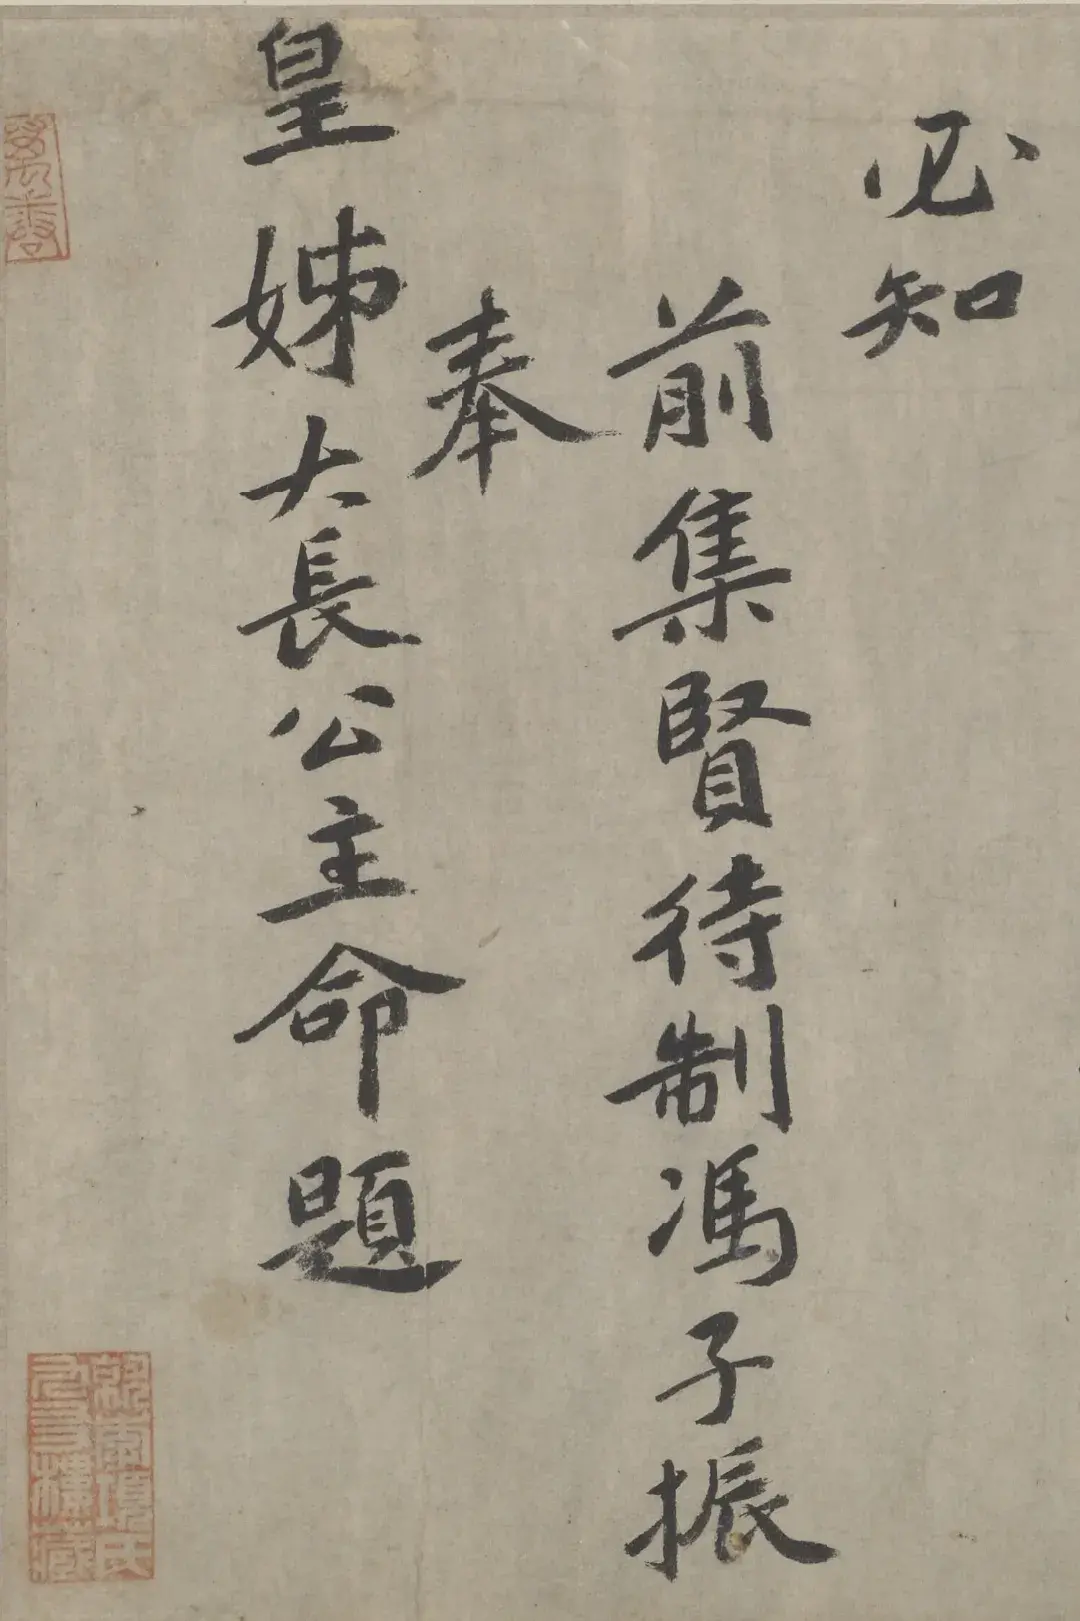 必知
前集賢待制馮子振
奉
皇姊大長公主命題